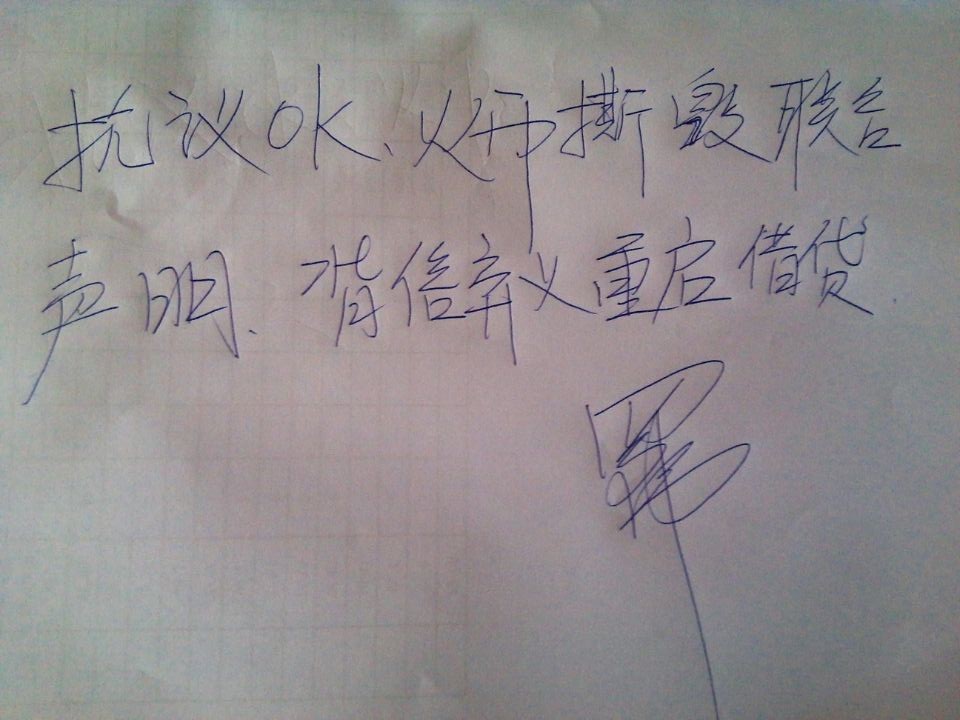 抗议OK、火币撕毁联合
声明、背信弃义重启借贷.